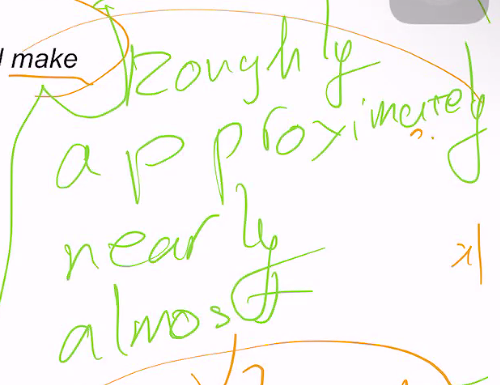 make
roughly
approximately
nearly
almost